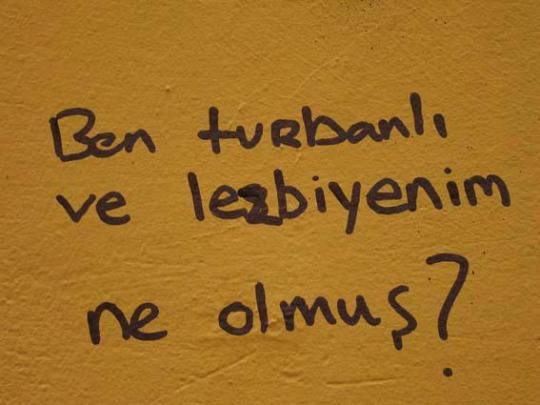 Ben turbanlı
ve lezbiyenim
ne olmuş?